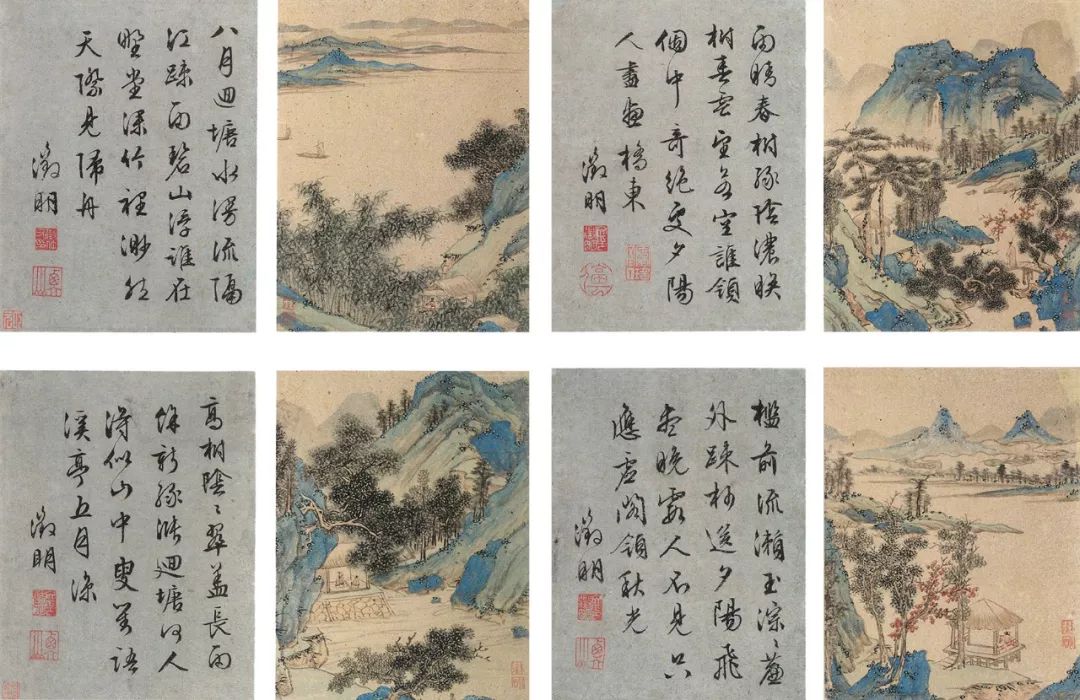 八月迴塘水漫流隔
江疎雨碧山浮誰在
野堂深竹裡渺然
天際見歸舟
徵明
雨晴春樹綠陰濃映
樹春雲望若空誰領
個中奇絕處夕陽
人畫橋東
徵明
高樹陰〻翠蓋長雨
餘新綠漲迴塘何人
得似山中叟語
溪亭五月涼
徵明
檻前流瀨玉淙〻簾
外疎林送夕陽飛
盡晚霞人不見只
應虛閣領秋光
徵明